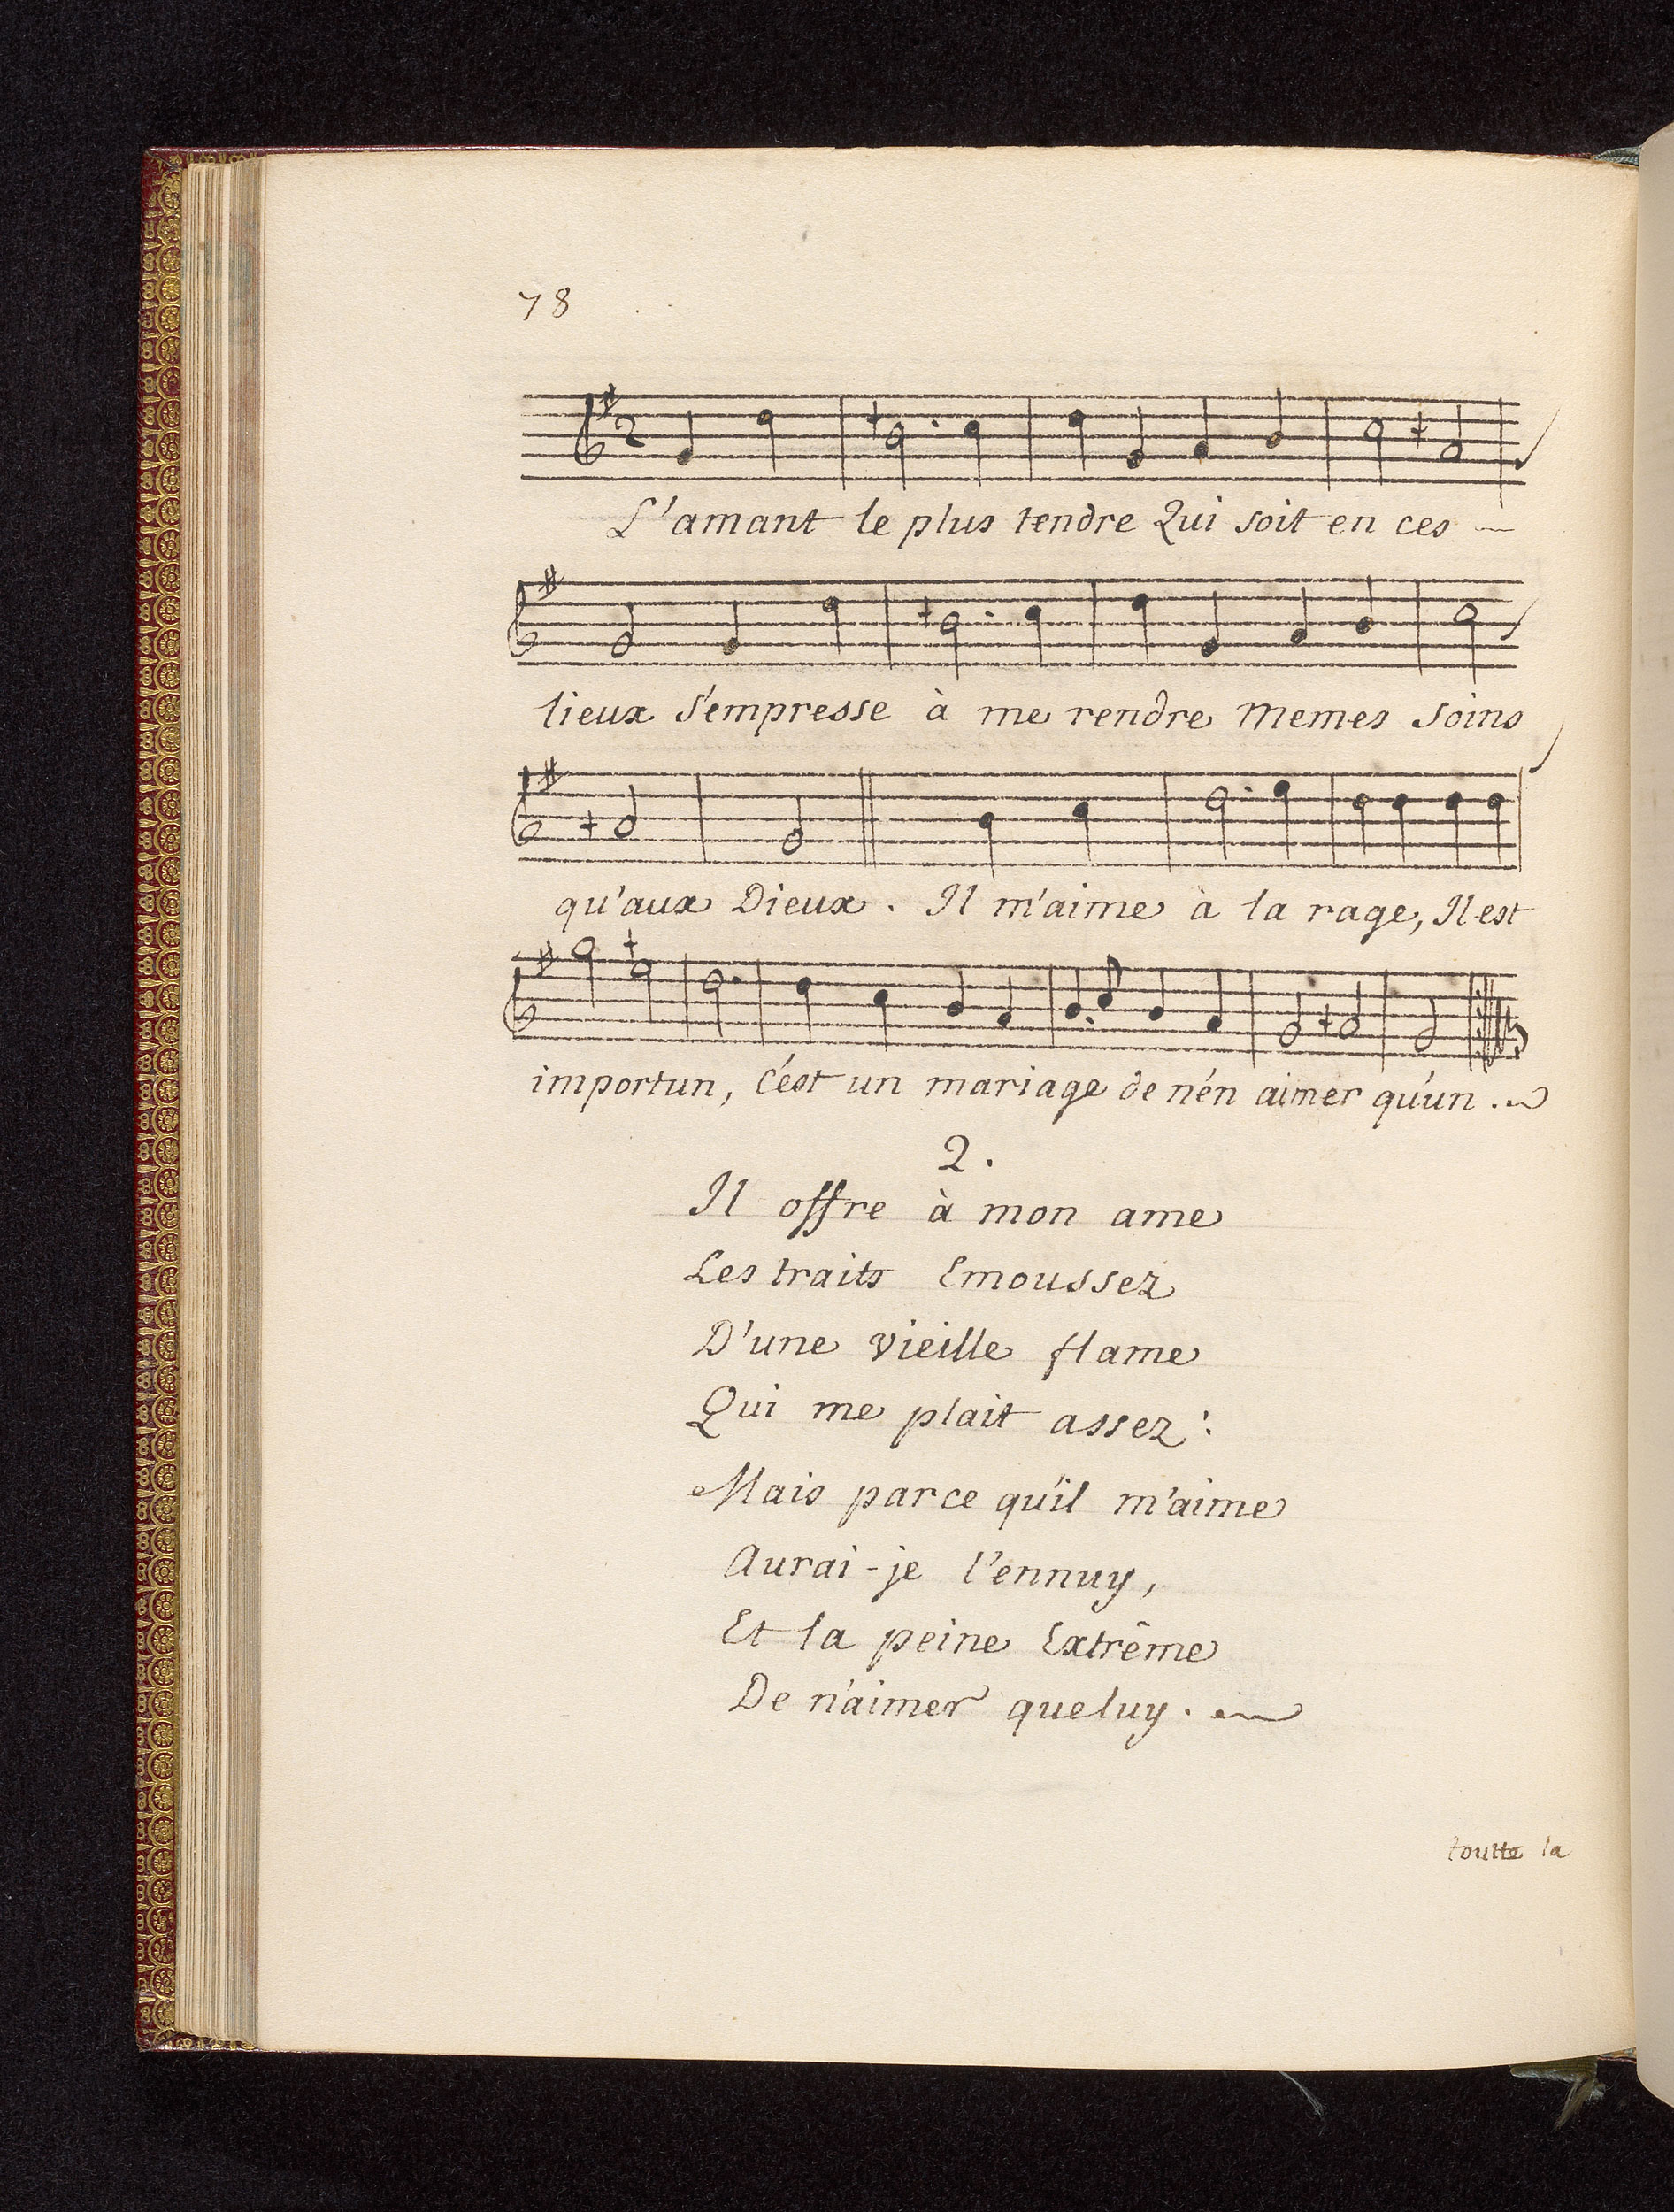 78
L'amant le plus tendre Qui soit en ces
lieux S'empresse à me rendre Memes Soins
qu'aux Dieux. Il m'aime à la rage, Il est
importun, C'est un mariage de n'én aimer qu'un.
2.
Il offre à mon ame
Les traits Emoussez
D'une vieille flame
Qui me plait assez:
Mais parce qu'il m'aime
Aurai-je l'ennuy,
Et la peine Extrême
De n'aimer que luy.
toutte la